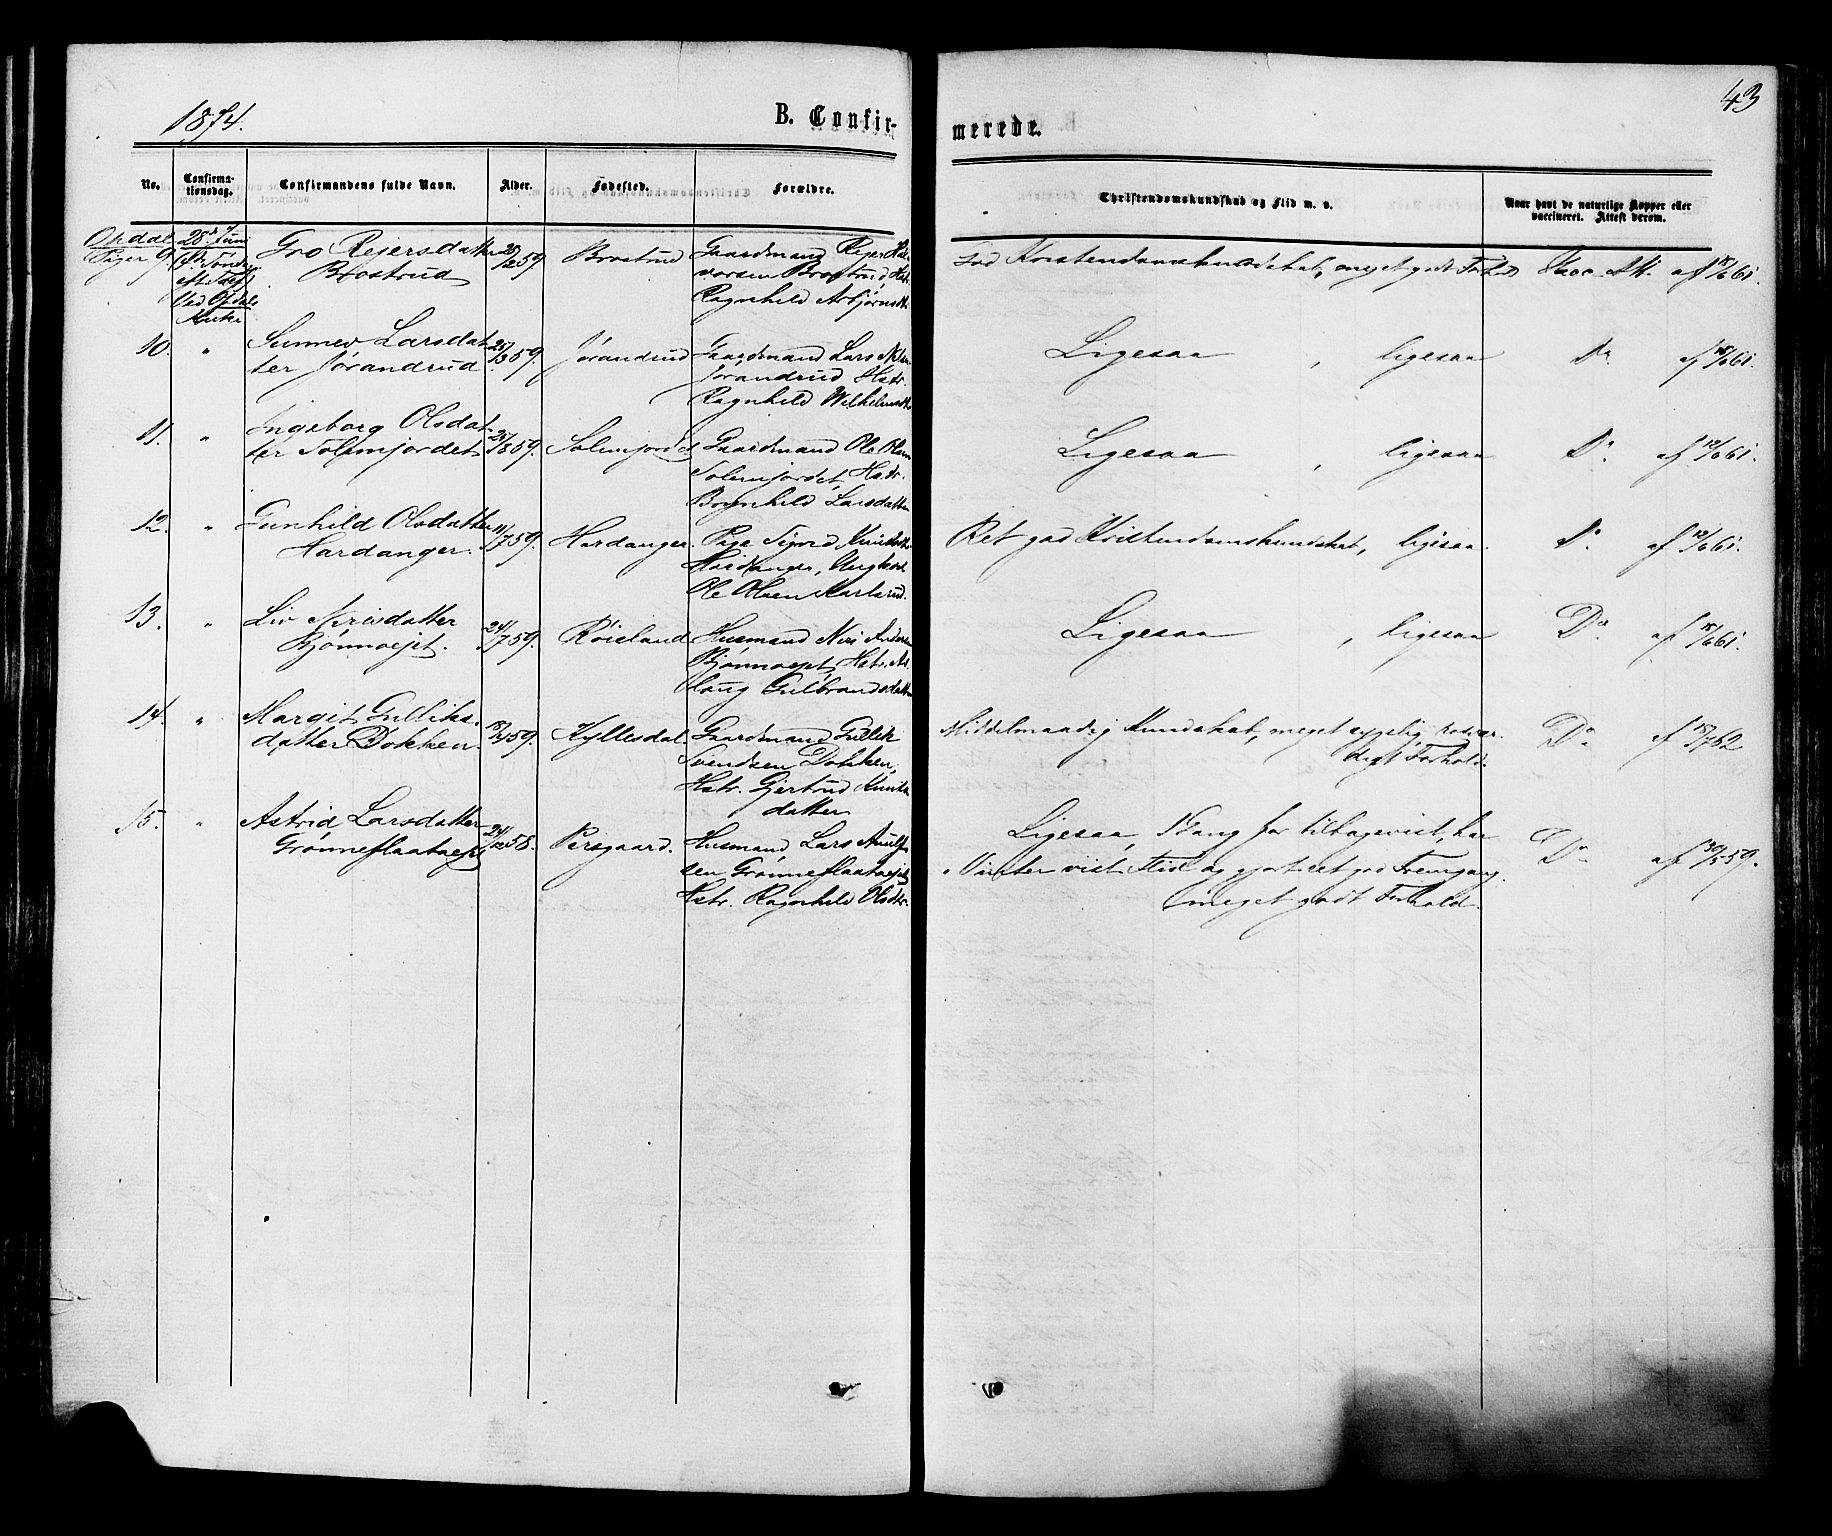 1874.
B. Confir-
merede.
43
No.
Confirma-
tionsdag.
Confirmandens fulde Navn.
Alder.
Fødested.
Forældre.
Christendomskundskab og Flid m. v.
Naar havt de naturlige Kopper eller
vaccineret. Attest derom.
Opdal
Piger 9.
28de Juni
4de Sønd.
eft. Tref.
Ved Opdals
Kirke
Gro Reiersdatter
Brostrud
28/2 59.
Brostrud
Gaardmand Reier Hal-
vorsen Brostrud, Hstr.
Ragnhild Asbjørnsdtr.
God Kristendomskundskab, meget godt Forhold
Vacc. Att. af 18/6 61.
10.
"
Sunnev Larsdat-
ter Jørandrud
25/3 59.
Jørandrud
Gaardmand Lars
Jørandrud Hstr.
Ragnhild
Ligesaa, ligesaa
Do af 18/6 61.
11.
"
Ingeborg Olsdat-
ter Solemjordet
59.
Solemjordet
Gaardmand Ole Olsen
Solemjordet, Hstr.
Larsdatter
Ligesaa, ligesaa
Do af 12/6 61.
12.
"
Gunhild Olsdatter
Hardanger.
11/7 59.
Hardanger.
Pige Sigrid
Hardanger, Ungkarl
Ole Olsen
Ret god Kristendomskundskab, ligesaa.
Do af 12/6 61.
13.
"
Liv Nirisdatter
Bjønnoejet.
24/7 59.
Røisland
Husmand Niri Andersen
Bjønnoejet, Hstr. As-
laug Gulbrandsdatter
Ligesaa, ligesaa
Do af 18/6 61.
14.
"
Margit Gulliks-
datter Dokken.
59.
Kyllesdal.
Gaardmand Gullik
Svendsen Dokken,
Hstr. Gjertrud Knuds-
datter
Middelmaadig Kundskab, meget sygelig, rosvær-
digt Forhold.
Do af 18/7 62
15.
"
Astrid Larsdatter
Grønneflaataejet
24/12 58.
Persgaard.
Husmand Lars
sen Grønneflaataejet
Hstr. Ragnhild Olsdtr.
Ligesaa, 1 Gang før tilbagevist, har
i Vinter vist Flid og gjort ret god Fremgang.
meget godt Forhold.
Do af 30/5 59.